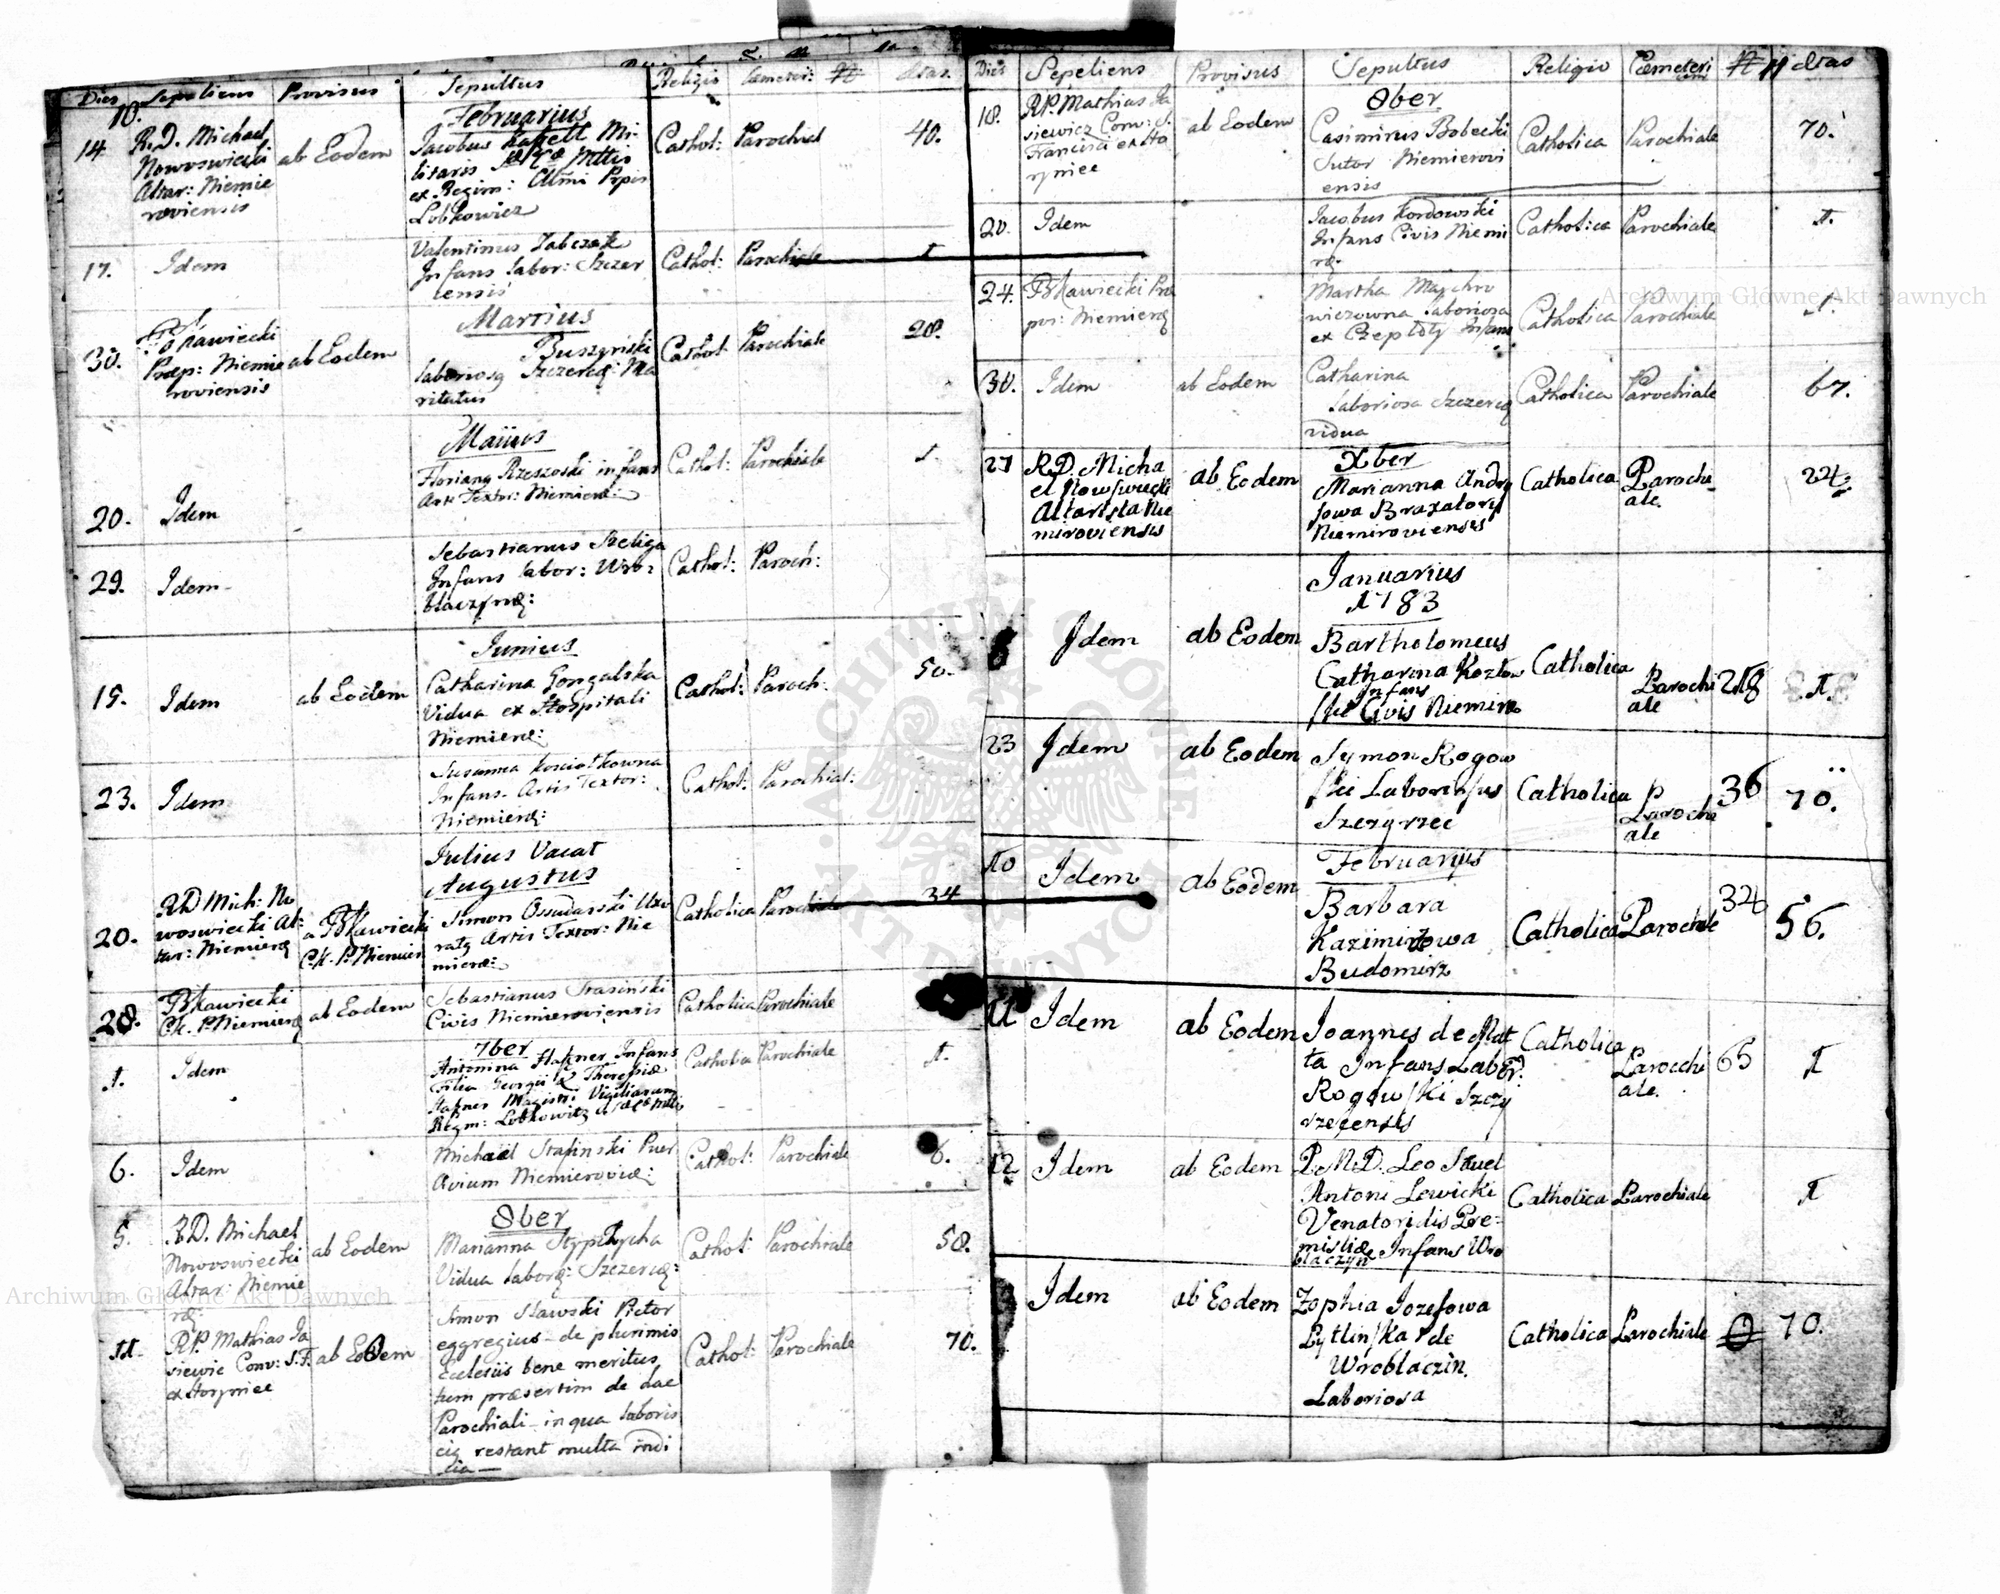 Dies Sepeliens Provisus Sepultus Religio Cæmeter: № Ætas
10.
Februarius
14 R.D. Michael Nowoswiecki Altar: Niemie roviensis
ab Eodem
Jacobus Kapell Mi-
litaris
ex Regim: Prpis
Lobkowicz
Cathol: Parochial 40.
17. Idem
Valentinus Zabczak
Infans labor: Szczer
censis
Cathol: Parochiale 1
Martius
30. Kawiecki
Præp: Niemie
roviensis
ab Eodem
Buszynski
laboriosq Szczercq: Ma
ritatus
Cathol Parochiale 28.
Maiius
20. Idem
Florianq Rzeszoski infans
Arti Textor: Niemierq:
Cathol: Parochiale 1
29. Idem
Sebastianus Szeliga
Infans labor: Wro:
blaczynq:
Cathol: Paroch:
Junius
19. Idem ab Eodem
Catharina Gongalska
Vidua ex Hospitali
Niemierq:
Cathol: Paroch: 50.
23. Idem
Susanna Kosciolkowna
Infans Artis Textor:
Niemierq:
Cathol: Parochial:
Julius Vacat
Augustus
20. RD Mich: No
woswiecki Al-
tar: Niemierq
a Kawiecki
C.K. P. Niemier
Simon Ossudarski Uxo
ratq Artis Textor: Nie
mierq:
Catholica Parochiale 34
28. Kawiecki
CK. P. Niemierq
ab Eodem
Sebastianus Strasiński
Civis Niemieroviensis
Catholica Parochiale
7ber
1. Idem
Antonina Hafner Infans
Filia Georgii & Theresiæ
Hafner Magistri Vigiliarum
Regm: Lobkowitz
Catholica Parochiale 1.
6. Idem
Michael Strasinski Puer
Civium Niemieroviæ:
Cathol: Parochiale 6.
8ber
5. R.D. Michael
Nowoswiecki
Altar: Niemie
rq:
ab Eodem
Marianna Stypzhycha
Vidua laborq: Szczercq:
Cathol: Parochiale 58.
11. R.P. Mathias Ja
siewic Conv: S.F.
ex Horyniec
ab Eodem
Simon Stawski Pictor
eggregius de plurimis
Ecclesiis bene meritus
tum præsertim de hac
Parochiali in qua laboris
eiq restant multa indi
cia
Cathol: Parochiale 70.
Dies Sepeliens Provisus Sepultus Religio Cæmeteri um № Ætas
8ber
18. R.P. Mathias Ja
siewicz Conv: S.
Francisci ex Ho
ryniec
ab Eodem
Casimirus Bobecki
Sutor Niemierovi
ensis
Catholica Parochiale 70.
20. Idem
Jacobus Kordowski
Infans Civis Niemi
rq.
Catholica Parochiale 1.
24. Kawiecki Præ
pos: Niemierq
Martha Maychro
wiczowna laboriosa
ex Czeploty Infans
Catholica Parochiale 1.
30. Idem ab Eodem
Catharina
laboriosa Szczercq
vidua
Catholica Parochiale 67.
Xber
27 R.D. Micha
el Nowswiecki
Altarista Nie
miroviensis
ab Eodem
Marianna Andry
sowa Braxatorq
Niemiroviensis
Catholica Parochi
ale. 22
Januarius
1783
Idem ab Eodem
Bartholomeus
Catharina Kozlow
Infans
ski Civis Niemiro
Catholica Parochi
ale 218 1.
23 Idem ab Eodem
Symon Rogow
ski Laboriosus
Szczyrzec
Catholica P
Parochi
ale 36 70.
Februarius
10 Idem ab Eodem
Barbara
Kazimirzowa
Budomirz
Catholica Parochale 32 56.
11 Idem ab Eodem
Joannes de Mat
ta Infans Labor:
Rogowski Szczy
rzecensis
Catholica
Parocchi
ale. 65 1
12 Idem ab Eodem
P. M. D. Leo Pawel
Antoni Lewicki
Venatoridis Pre-
misliæ Infans Wro
blaczyn
Catholica Parochiale 1
Idem ab Eodem
Zophia Jozefowa
Pytlinska de
Wroblaczin.
Laboriosa
Catholica Parochiale 0 70.
ARCHIWUM GŁÓWNE AKT DAWNYCH
Archiwum Główne Akt Dawnych
Archiwum Główne Akt Dawnych